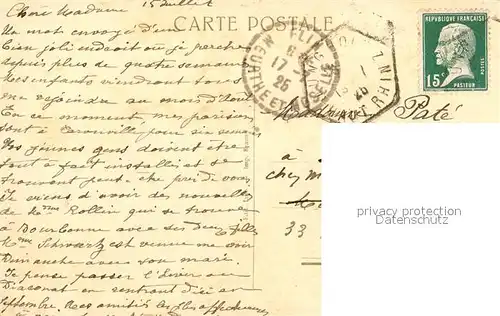 Chère Madame 15 Juillet
CARTE POSTALE
Un mot envoyé d'un
bien joli endroit où je perche
depuis plus de quatre semaines
Mes enfants viendront tous
me rejoindre au mois d'Août
En ce moment, mes parisiens
sont à pour six semaines
Vos jeunes gens doivent être
tout à fait installés et se
trouvent peut-être près de vous
Je viens d'avoir des nouvelles
de Mme Rollin qui se trouve
à Bourbonne avec ses deux filles
Mme Schwartz est venue me voir
Dimanche avec son mari.
Je pense passer l'hiver au
Diaconat en rentrant d'ici en
Septembre. Mes amitiés les plus affectueuses
MEURTHE ET MOSELLE
17
25
HAUT RHIN
RÉPUBLIQUE FRANÇAISE
15c
PASTEUR
Madame Paté
à
chez M
33
privacy protection
Datenschutz